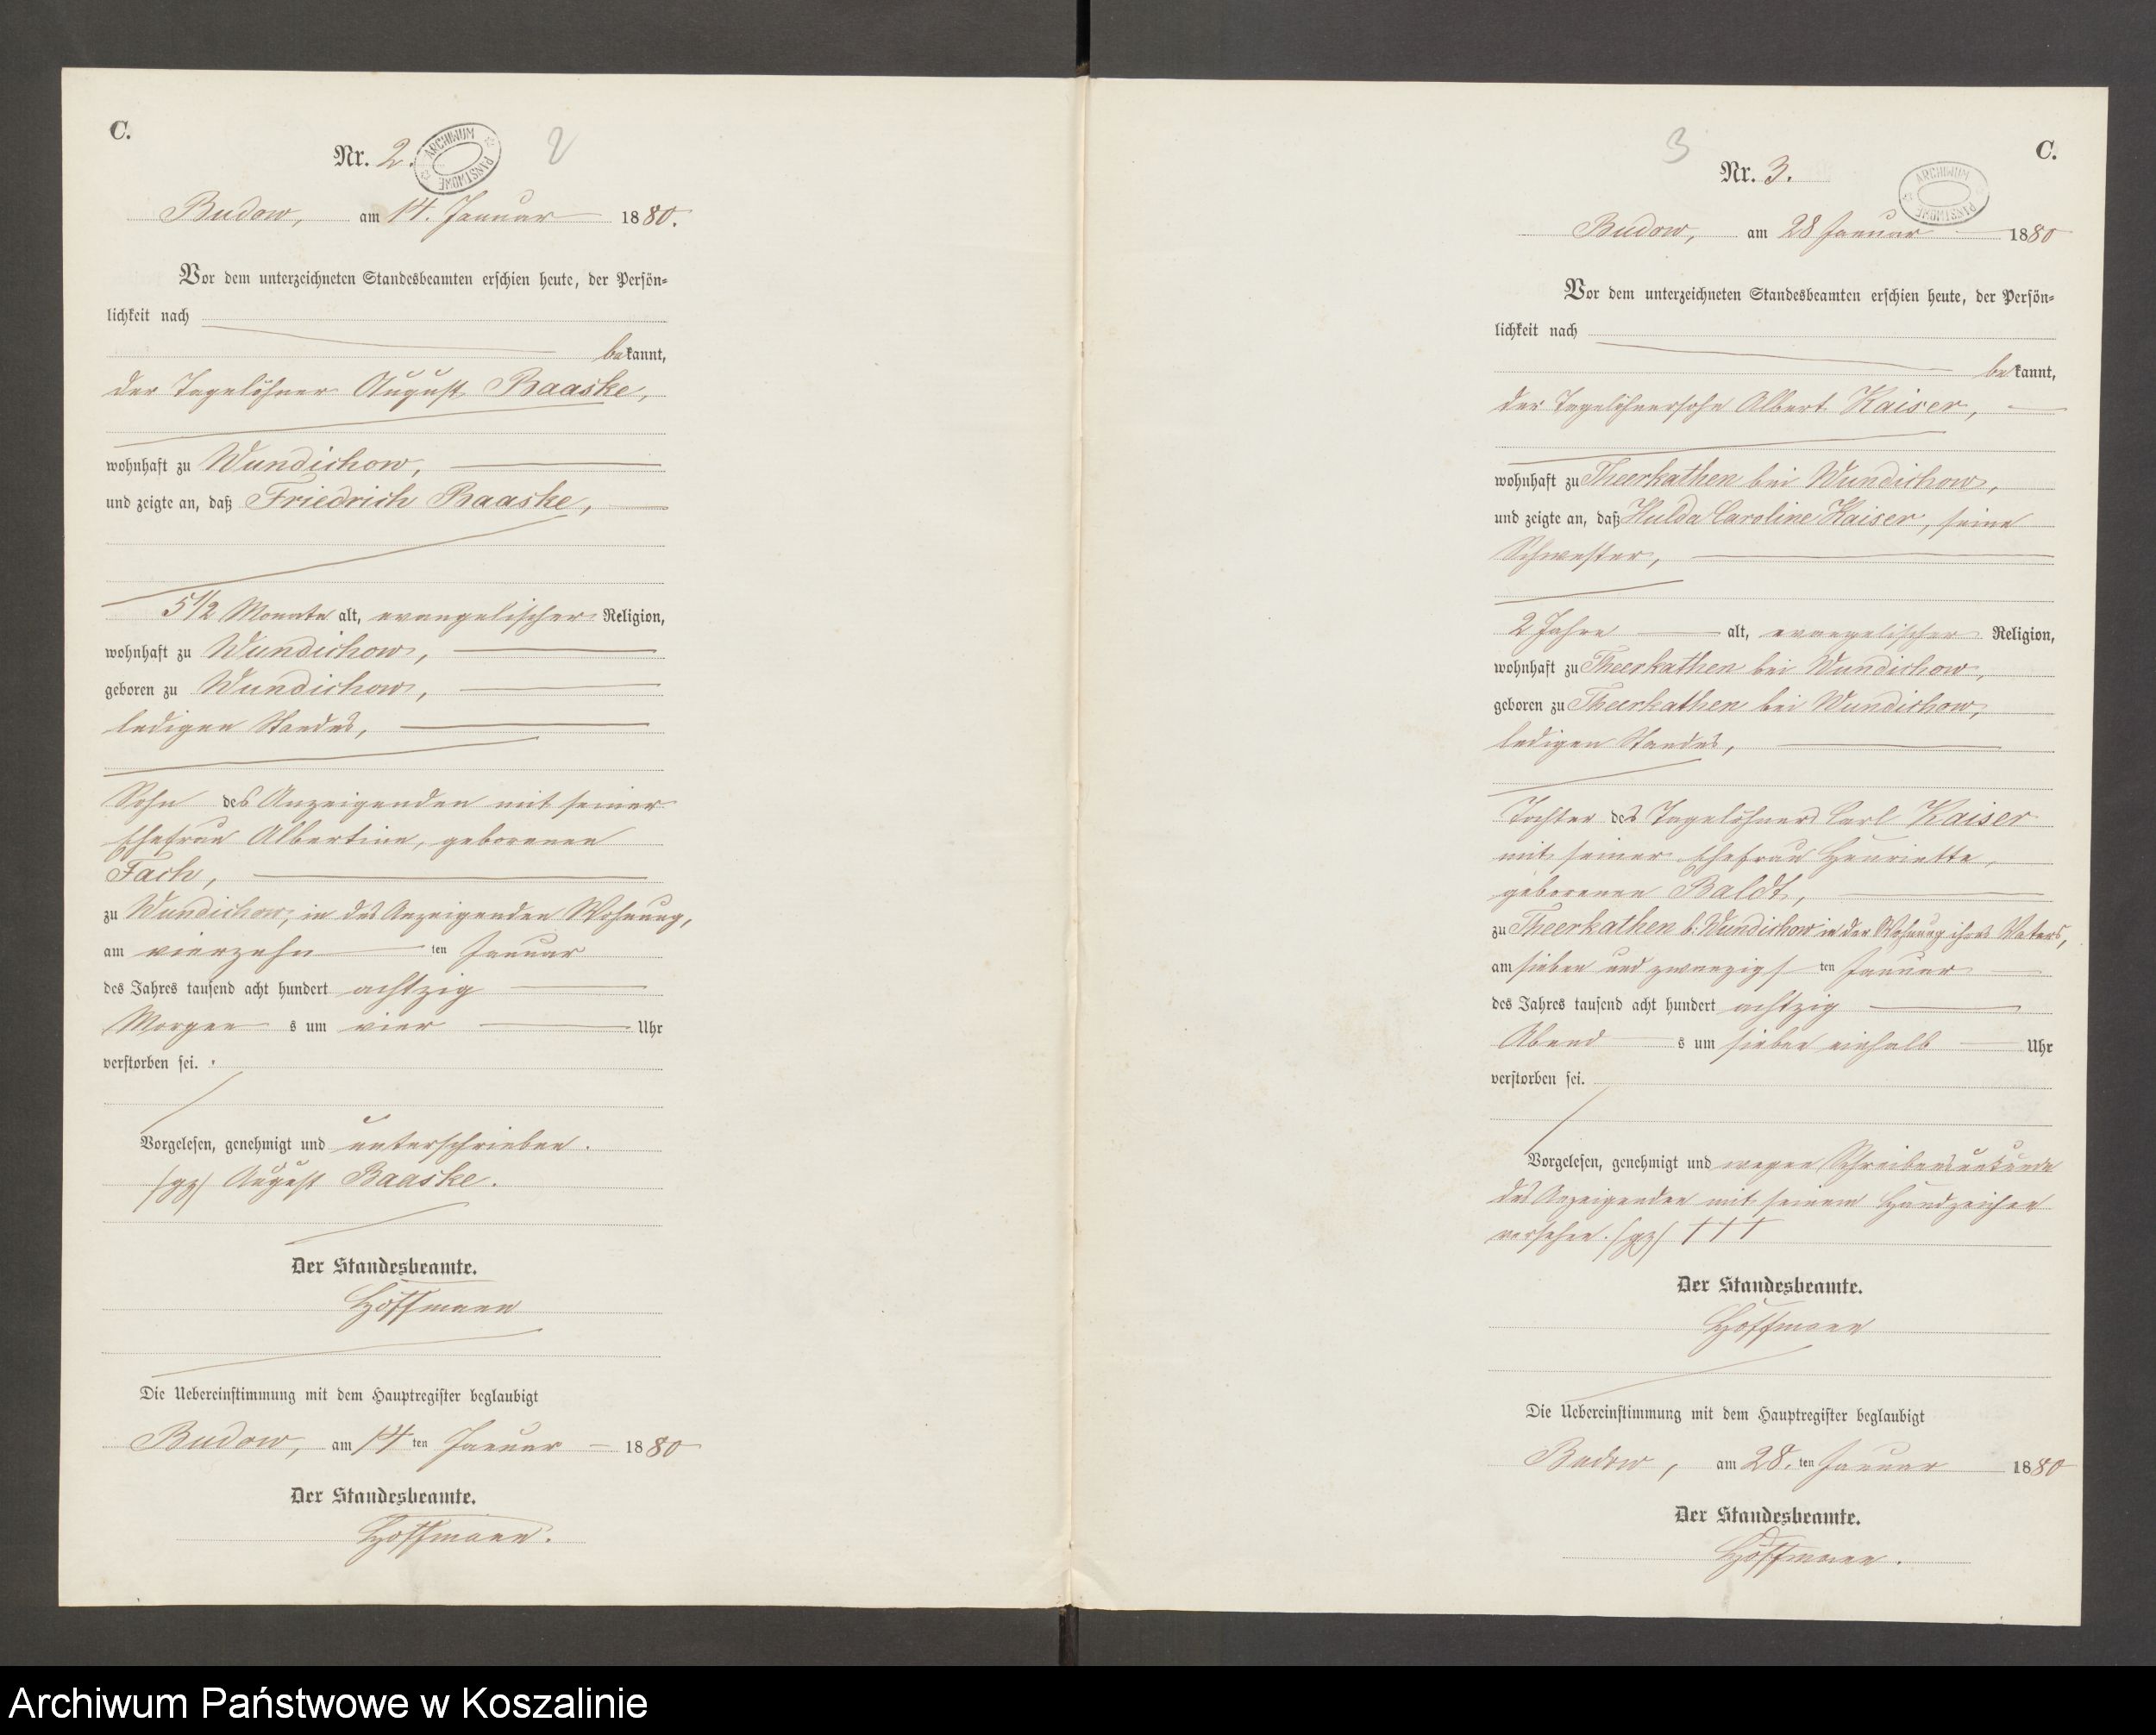 C.
Nr. 2.
2
ARCHIWUM PAŃSTWOWE
Budow, am 14. Januar 1880.
Vor dem unterzeichneten Standesbeamten erschien heute, der Persön=
lichkeit nach
bekannt,
der Tagelöhner August Baaske,
wohnhaft zu Wundichow,
und zeigte an, daß Friedrich Baaske,
5 1/2 Monate alt, evangelischer Religion,
wohnhaft zu Wundichow,
geboren zu Wundichow,
ledigen Standes,
Sohn des Anzeigenden mit seiner
Ehefrau Albertine, geborenen
Fach,
zu Wundichow, in des Anzeigenden Wohnung,
am vierzehn ten Januar
des Jahres tausend acht hundert achtzig
Morgen s um vier Uhr
verstorben sei.
Vorgelesen, genehmigt und unterschrieben.
/gz/ August Baaske.
Der Standesbeamte.
Hoffmann
Die Uebereinstimmung mit dem Hauptregister beglaubigt
Budow, am 14 ten Januar 1880
Der Standesbeamte.
Hoffmann.
3
C.
Nr. 3.
ARCHIWUM PAŃSTWOWE
Budow, am 28 Januar 1880
Vor dem unterzeichneten Standesbeamten erschien heute, der Persön=
lichkeit nach
bekannt,
der Tagelöhnersohn Albert Kaiser,
wohnhaft zu Theerkathen bei Wundichow,
und zeigte an, daß Hulda Caroline Kaiser, seine
Schwester,
2 Jahre alt, evangelischer Religion,
wohnhaft zu Theerkathen bei Wundichow,
geboren zu Theerkathen bei Wundichow,
ledigen Standes,
Tochter des Tagelöhners Carl Kaiser
mit seiner Ehefrau Henriette,
geborenen Baldt,
zu Theerkathen b. Wundichow in der Wohnung ihres Vaters,
am sieben und zwanzigs ten Januar
des Jahres tausend acht hundert achtzig
Abend s um sieben einhalb Uhr
verstorben sei.
Vorgelesen, genehmigt und wegen Schreibensunkunde
des Anzeigenden mit seinem Handzeichen
versehen. /gz/ † † †
Der Standesbeamte.
Hoffmann
Die Uebereinstimmung mit dem Hauptregister beglaubigt
Budow, am 28. ten Januar 1880
Der Standesbeamte.
Hoffmann.
Archiwum Państwowe w Koszalinie